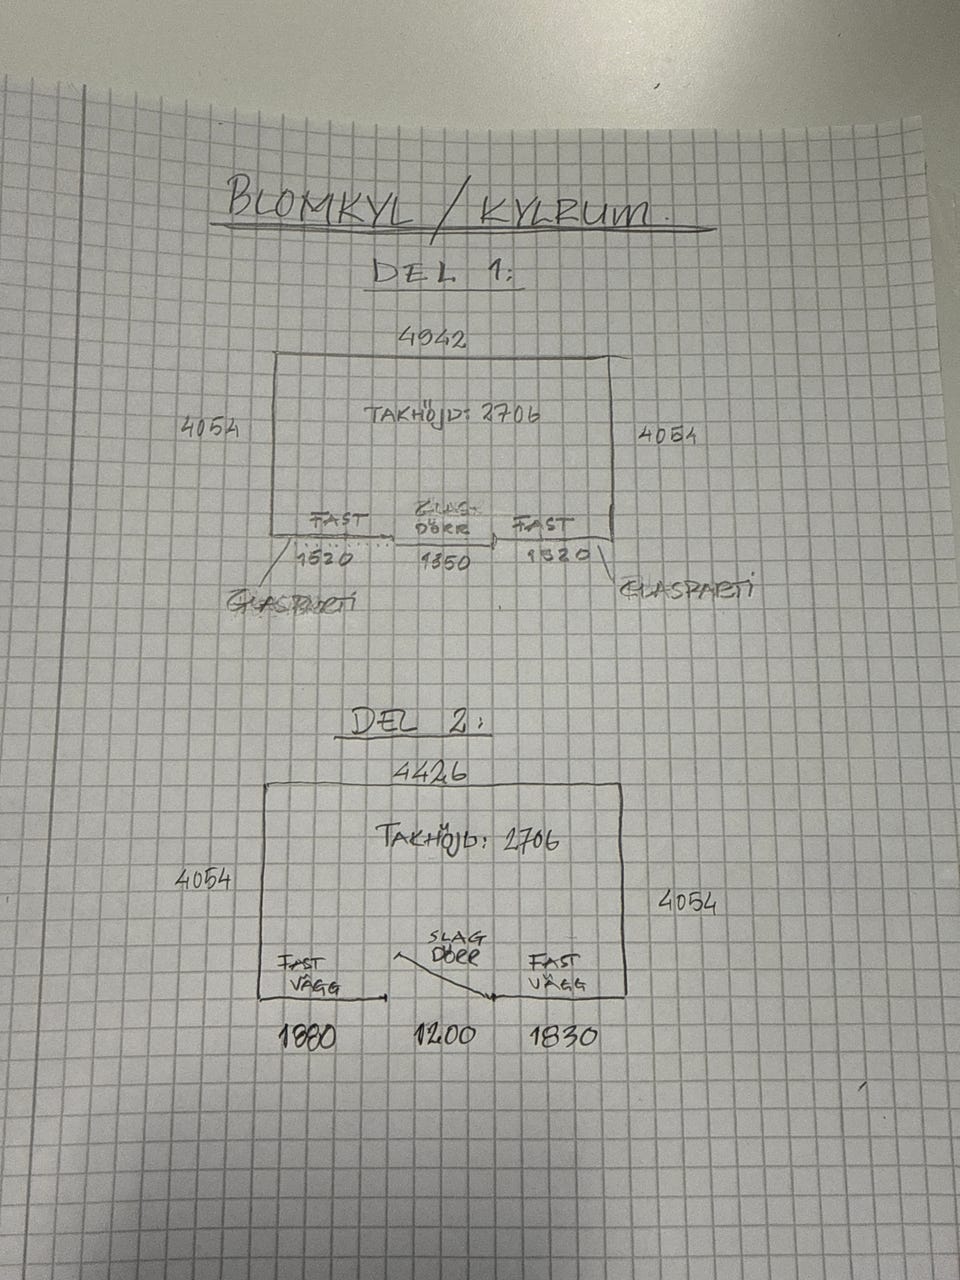 BLOMKYL / KYLRUM.
DEL 1:
4942
TAKHÖJD: 2706
4054
4054
FAST
GLAS-
DÖRR
FAST
1520
1350
1520
GLASPARTI
GLASPARTI
DEL 2:
4426
TAKHÖJD: 2706
4054
4054
SLAG
DÖRR
FAST
VÄGG
FAST
VÄGG
1200
1830